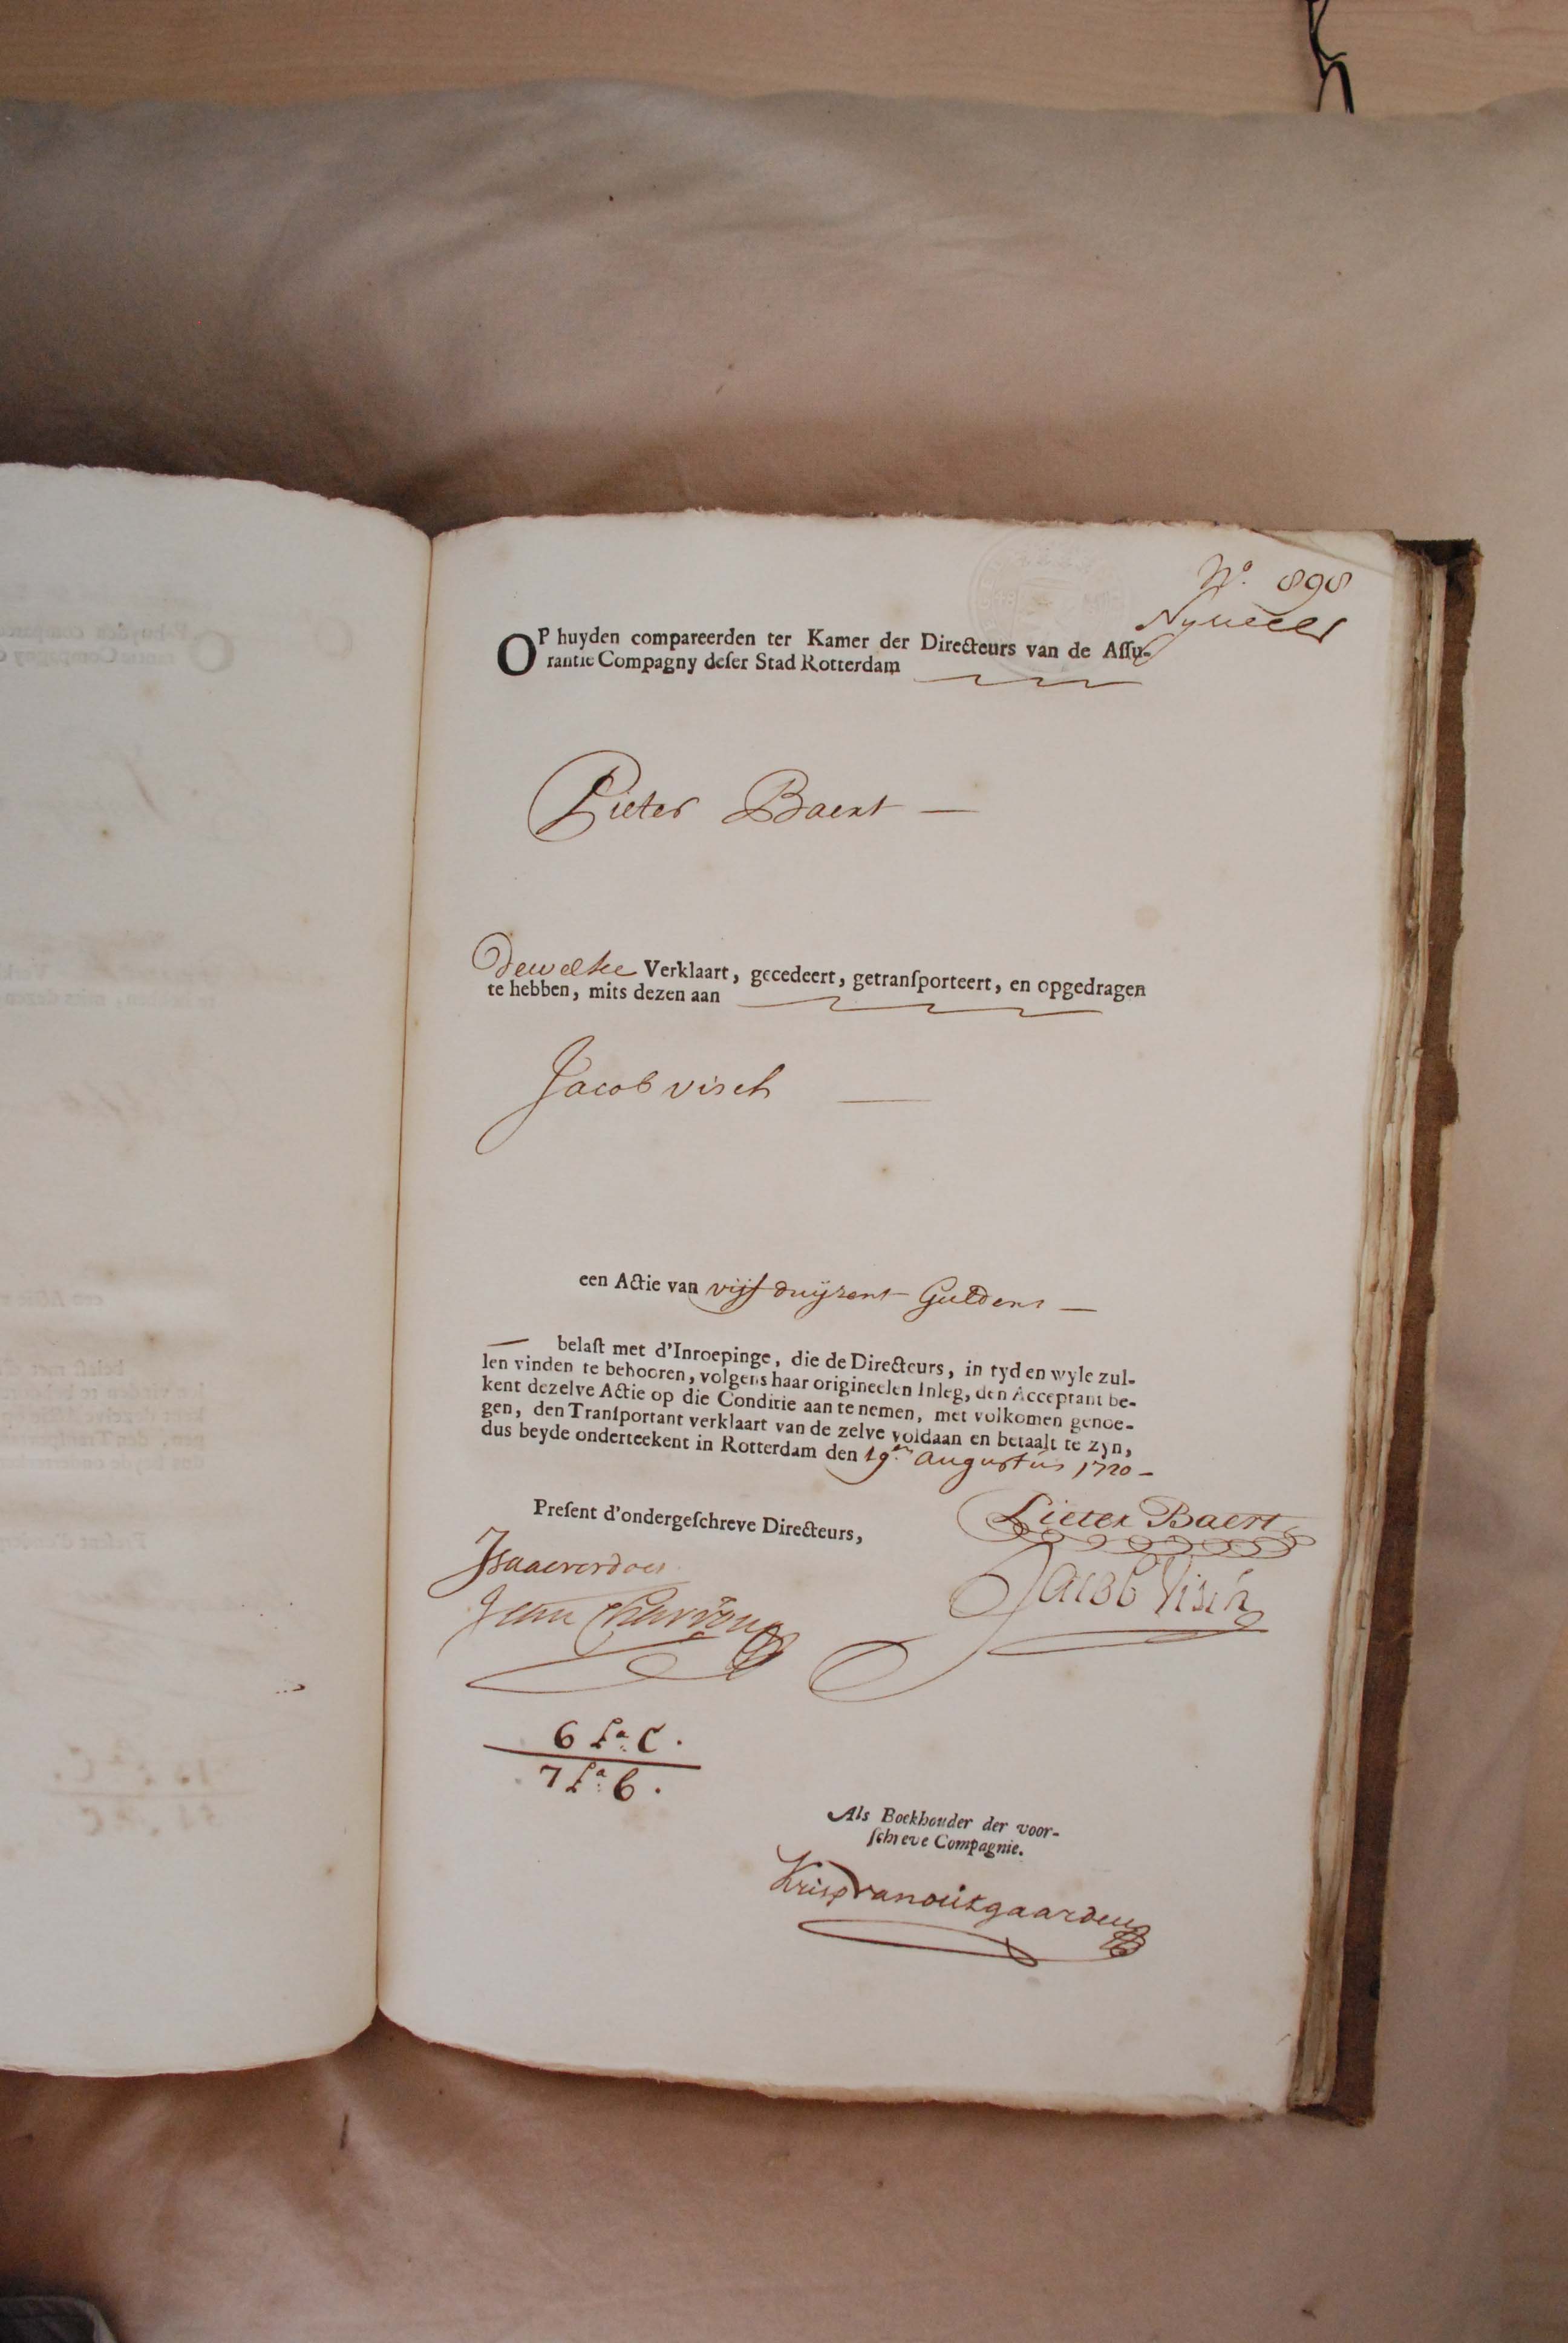 N.º 898
OP huyden compareerden ter Kamer der Directeurs van de Assu-
rantie Compagny deser Stad Rotterdam
Pieter Baert —
Dewelke Verklaart, gecedeert, getransporteert, en opgedragen
te hebben, mits dezen aan
Jacob visch —
een Actie van vijf duijzent Guldens —
— belast met d'Inroepinge, die de Directeurs, in tyd en wyle zul-
len vinden te behooren, volgens haar origineelen Inleg, den Acceptant be-
kent dezelve Actie op die Conditie aan te nemen, met volkomen genoe-
gen, den Transportant verklaart van de zelve voldaan en betaalt te zyn,
dus beyde onderteekent in Rotterdam den 19.en augustus 1720 –
Present d'ondergeschreve Directeurs,
Pieter Baert
Isaac verdoes
Jacob Visch
Jean Charron
6 La: C.
7 La: 6.
Als Boekhouder der voor-
schreve Compagnie.
Krisp van outgaarden